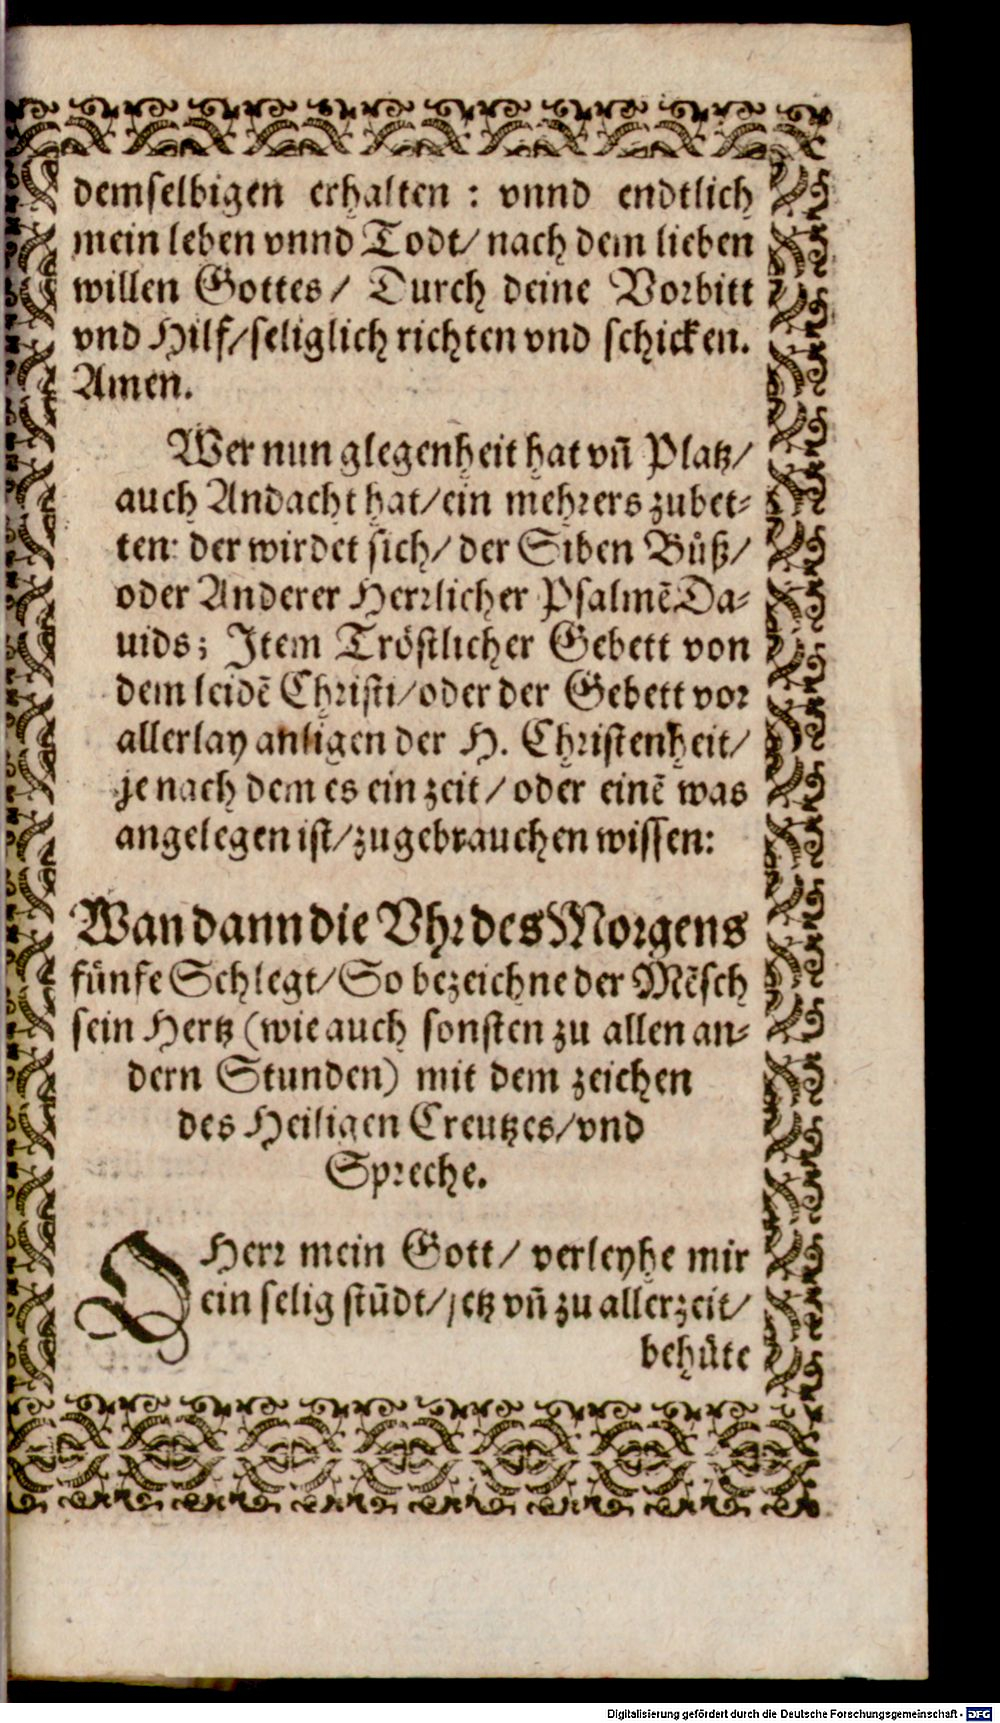 demſelbigen erhalten : vnnd endtlich
mein leben vnnd Todt/ nach dem lieben
willen Gottes/ Durch deine Vorbitt
vnd Hilf/ſeliglich richten vnd ſchicken.
Amen.
Wer nun glegenheit hat vñ Platz/
auch Andacht hat/ein mehrers zubet⸗
ten: der wirdet ſich/ der Siben Bůß/
oder Anderer Herrlicher Pſalmẽ Da⸗
uids; Item Tröſtlicher Gebett von
dem leidẽ Chriſti/oder der Gebett vor
allerlay anligen der H. Chriſtenheit/
je nach dem es ein zeit/ oder einẽ was
angelegen iſt/zugebrauchen wiſſen:
Wan dann die Vhr des Morgens
fünfe Schlegt/So bezeichne der Mẽſch
ſein Hertz (wie auch ſonſten zu allen an⸗
dern Stunden) mit dem zeichen
des Heiligen Creutzes/vnd
Spreche.
O Herr mein Gott/ verleyhe mir
ein ſelig ſtũdt/jetz vñ zu allerzeit/
behüte
Digitalisierung gefördert durch die Deutsche Forschungsgemeinschaft - DFG